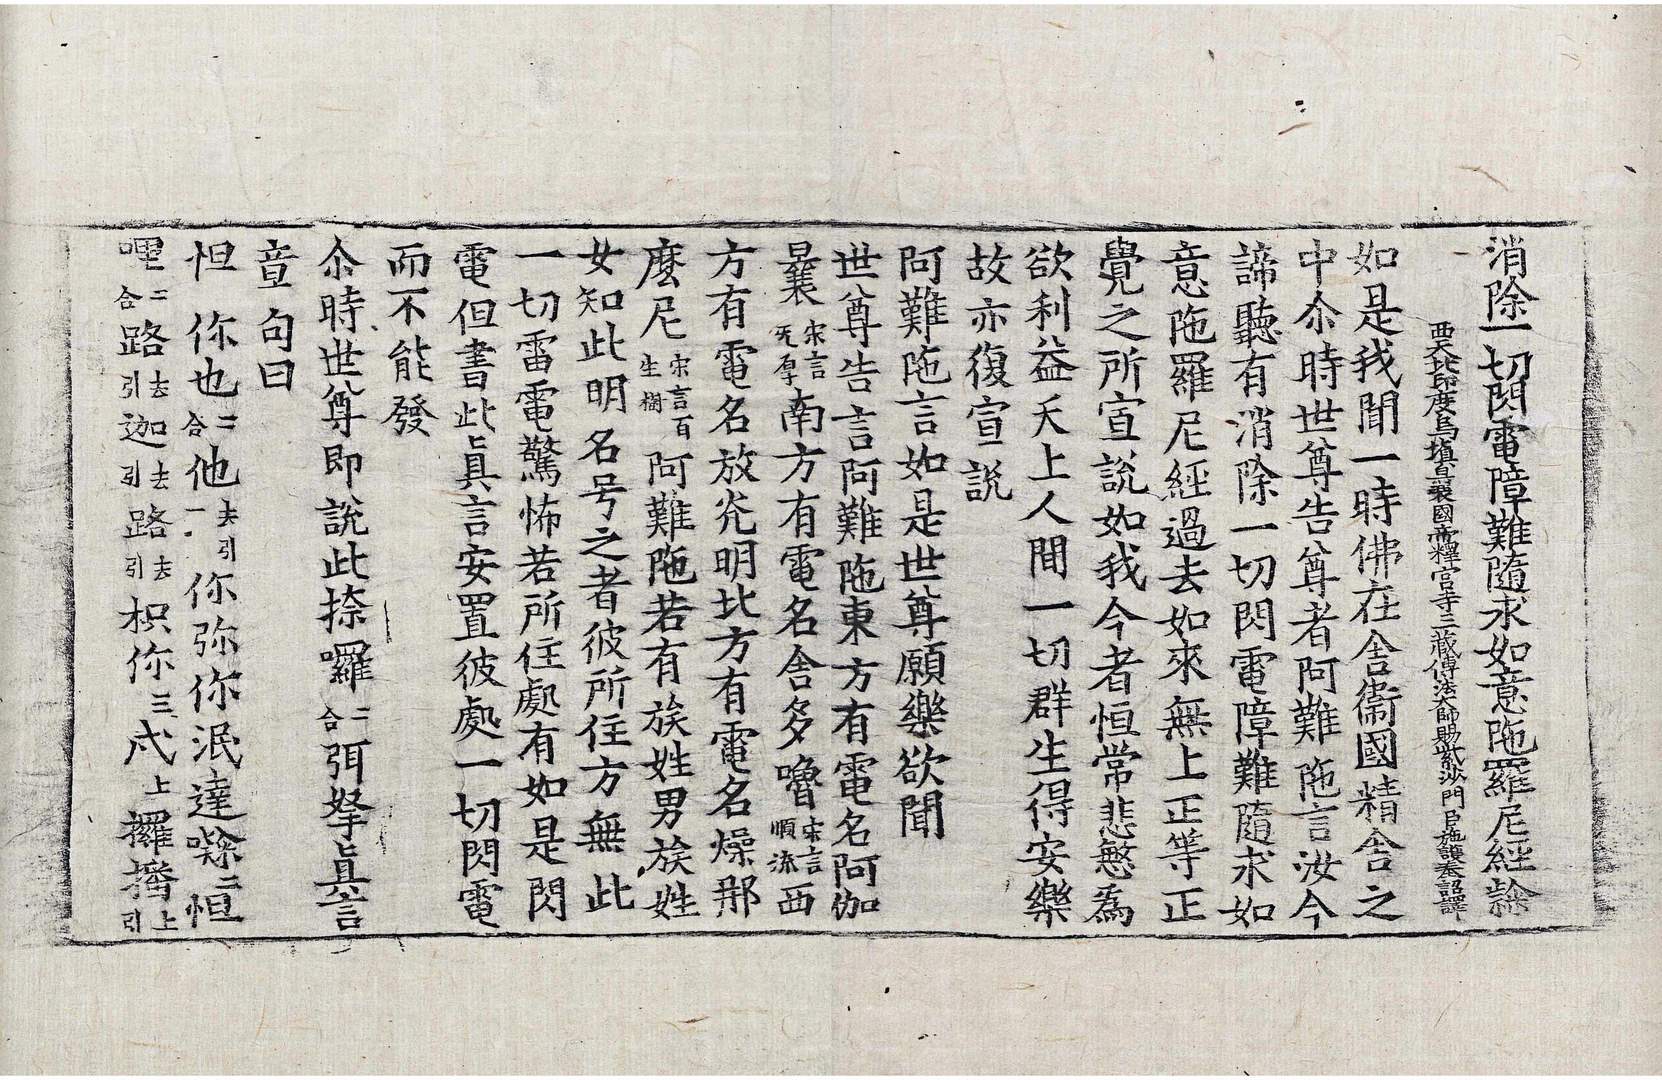 消除一切閃電障難隨求如意陁羅尼經 絵
西天北印度烏塡曩國帝釋宮寺三藏傳法大師賜紫沙門臣施護奉詔譯
如是我聞一時佛在舍衞國精舍之
中尒時世尊告尊者阿難陁言汝今
諦聽有消除一切閃電障難隨求如
意陁羅尼經過去如來無上正等正
覺之所宣説如我今者恒常悲慜為
欲利益天上人間一切群生得安樂
故亦復宣説
阿難陁言如是世尊願樂欲聞
世尊告言阿難陁東方有電名阿伽
曩宋言旡厚南方有電名舍多嚕宋言順流西
方有電名放光明北方有電名燥那
麼尼宋言百生樹阿難陁若有族姓男族姓
女知此明名号之者彼所住方無此
一切雷電驚怖若所住處有如是閃
電但書此眞言安置彼處一切閃電
而不能發
尒時世尊即説此捺囉二合弭拏眞言
章句曰
怛 你也二合他去引一你弥你泯達㗚二怛
哩二合路去引迦去引路去引枳你三戍上攞播上引